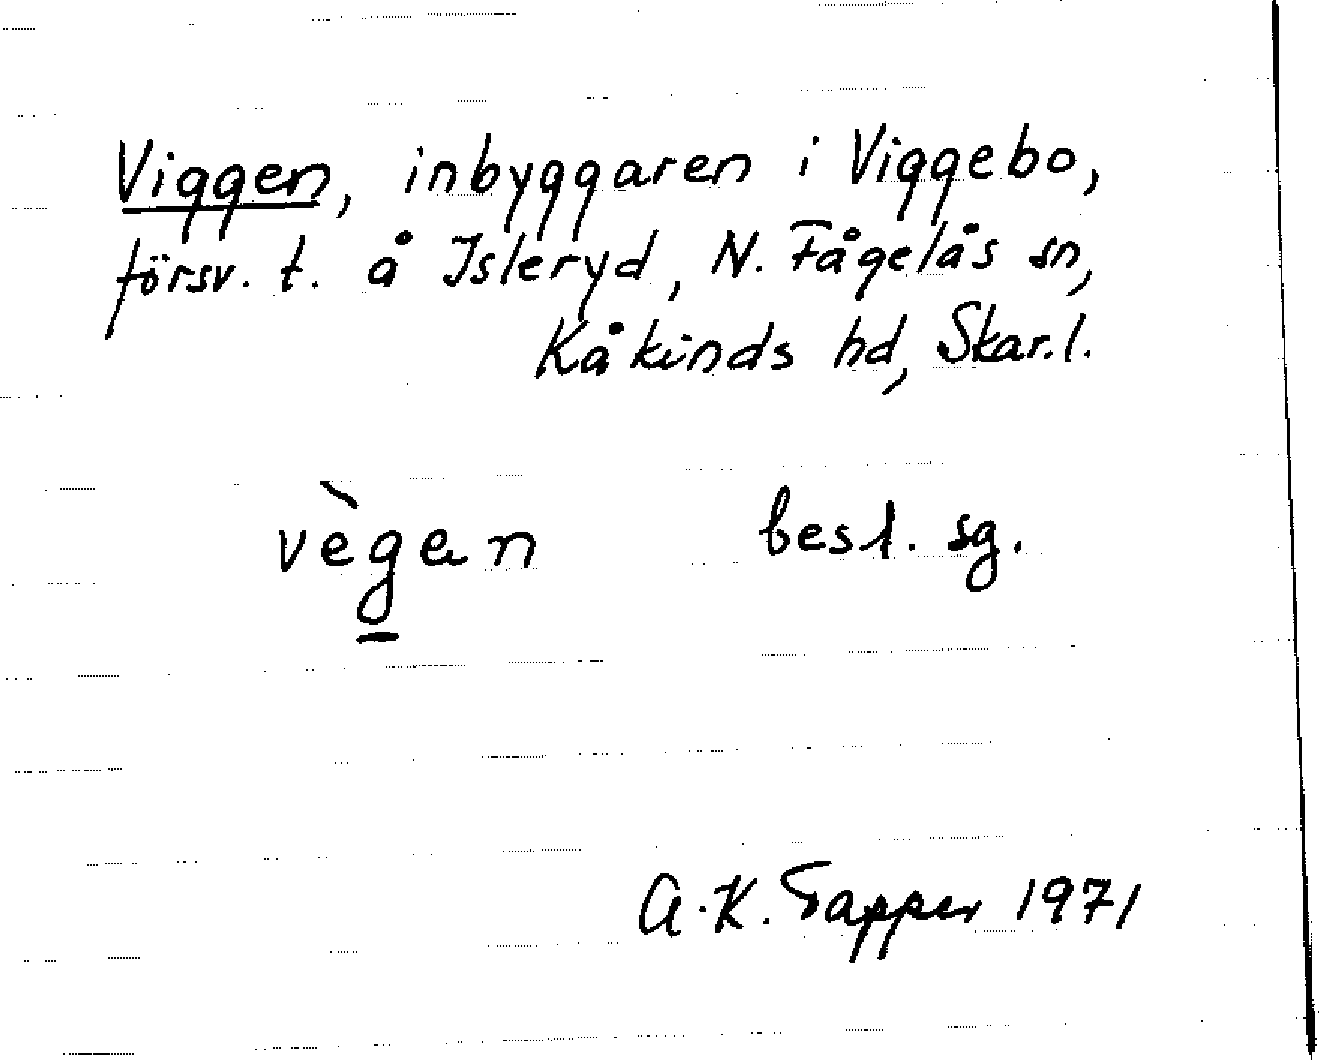 Viggen, inbyggaren i Viggebo,
försv. t. å Isleryd, N. Fågelås sn,
Kåkinds hd, Skar.l.
vègen best. sg.
A.K. Tapper 1971